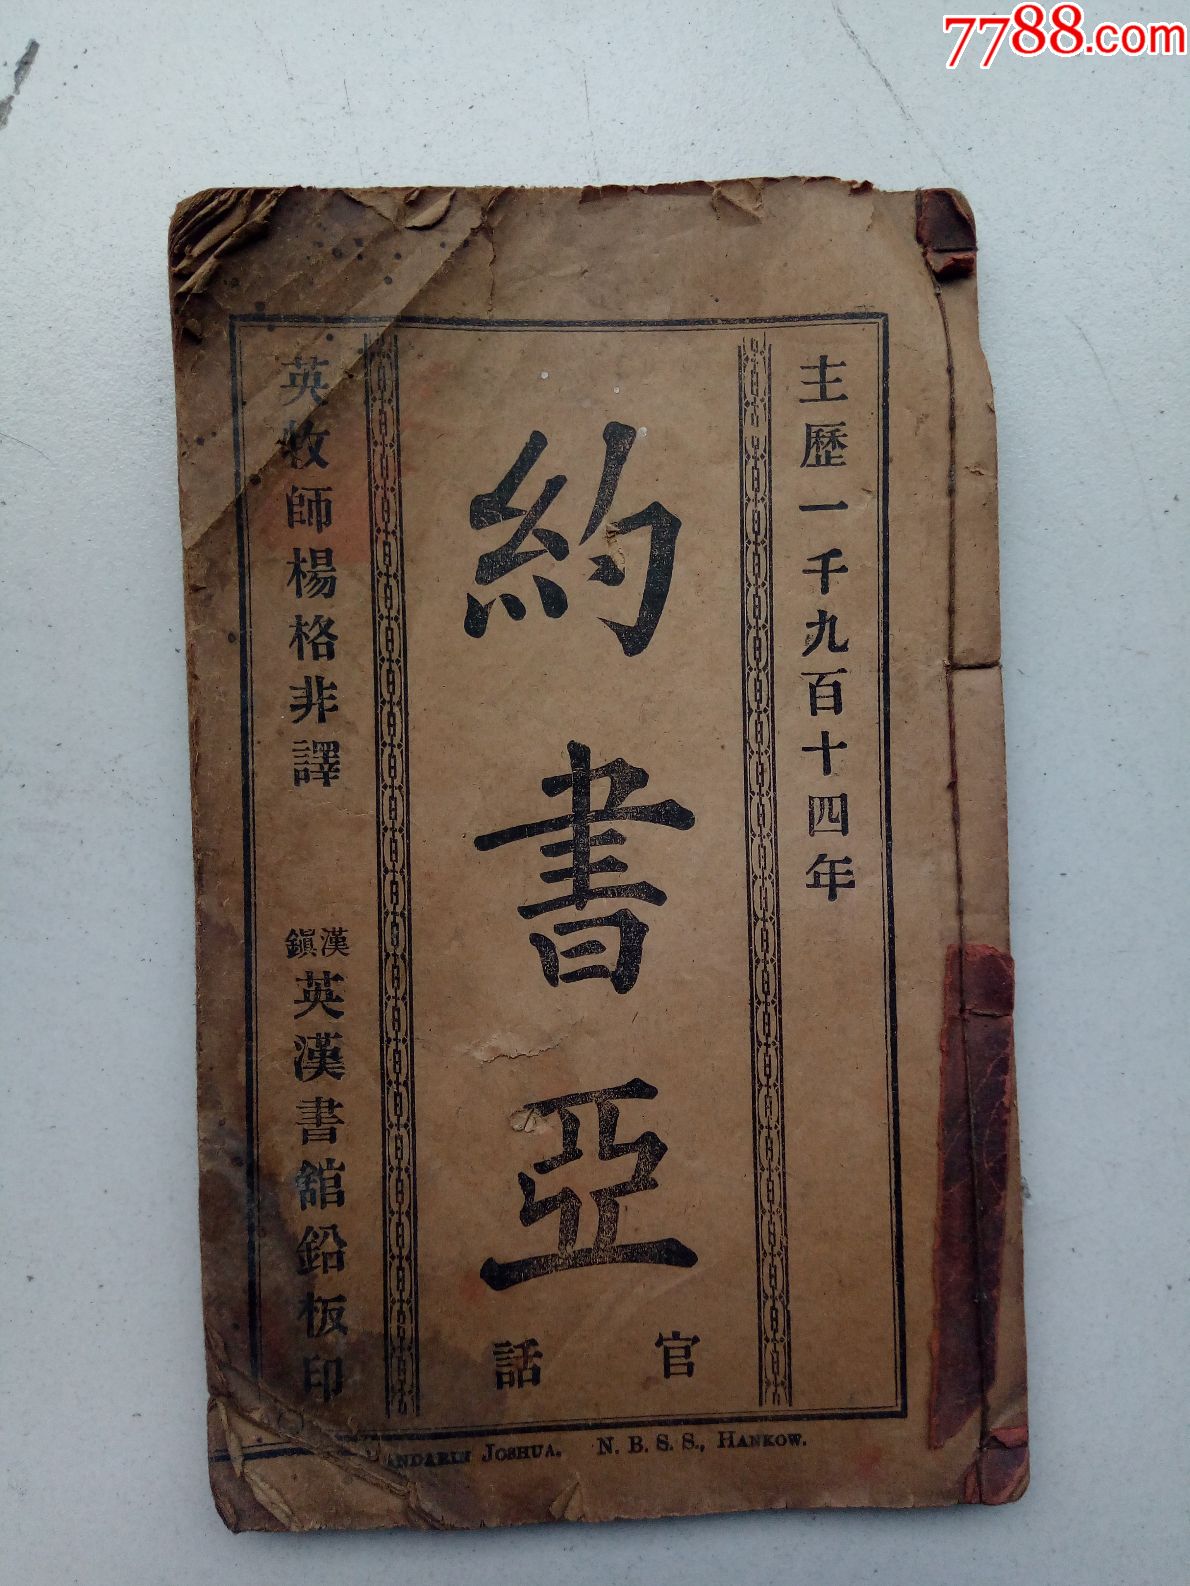 7788.com
主歷一千九百十四年
約書亞
官話
英牧師楊格非譯
漢鎭英漢書館鉛板印
MANDARIN JOSHUA. N. B. S. S., HANKOW.